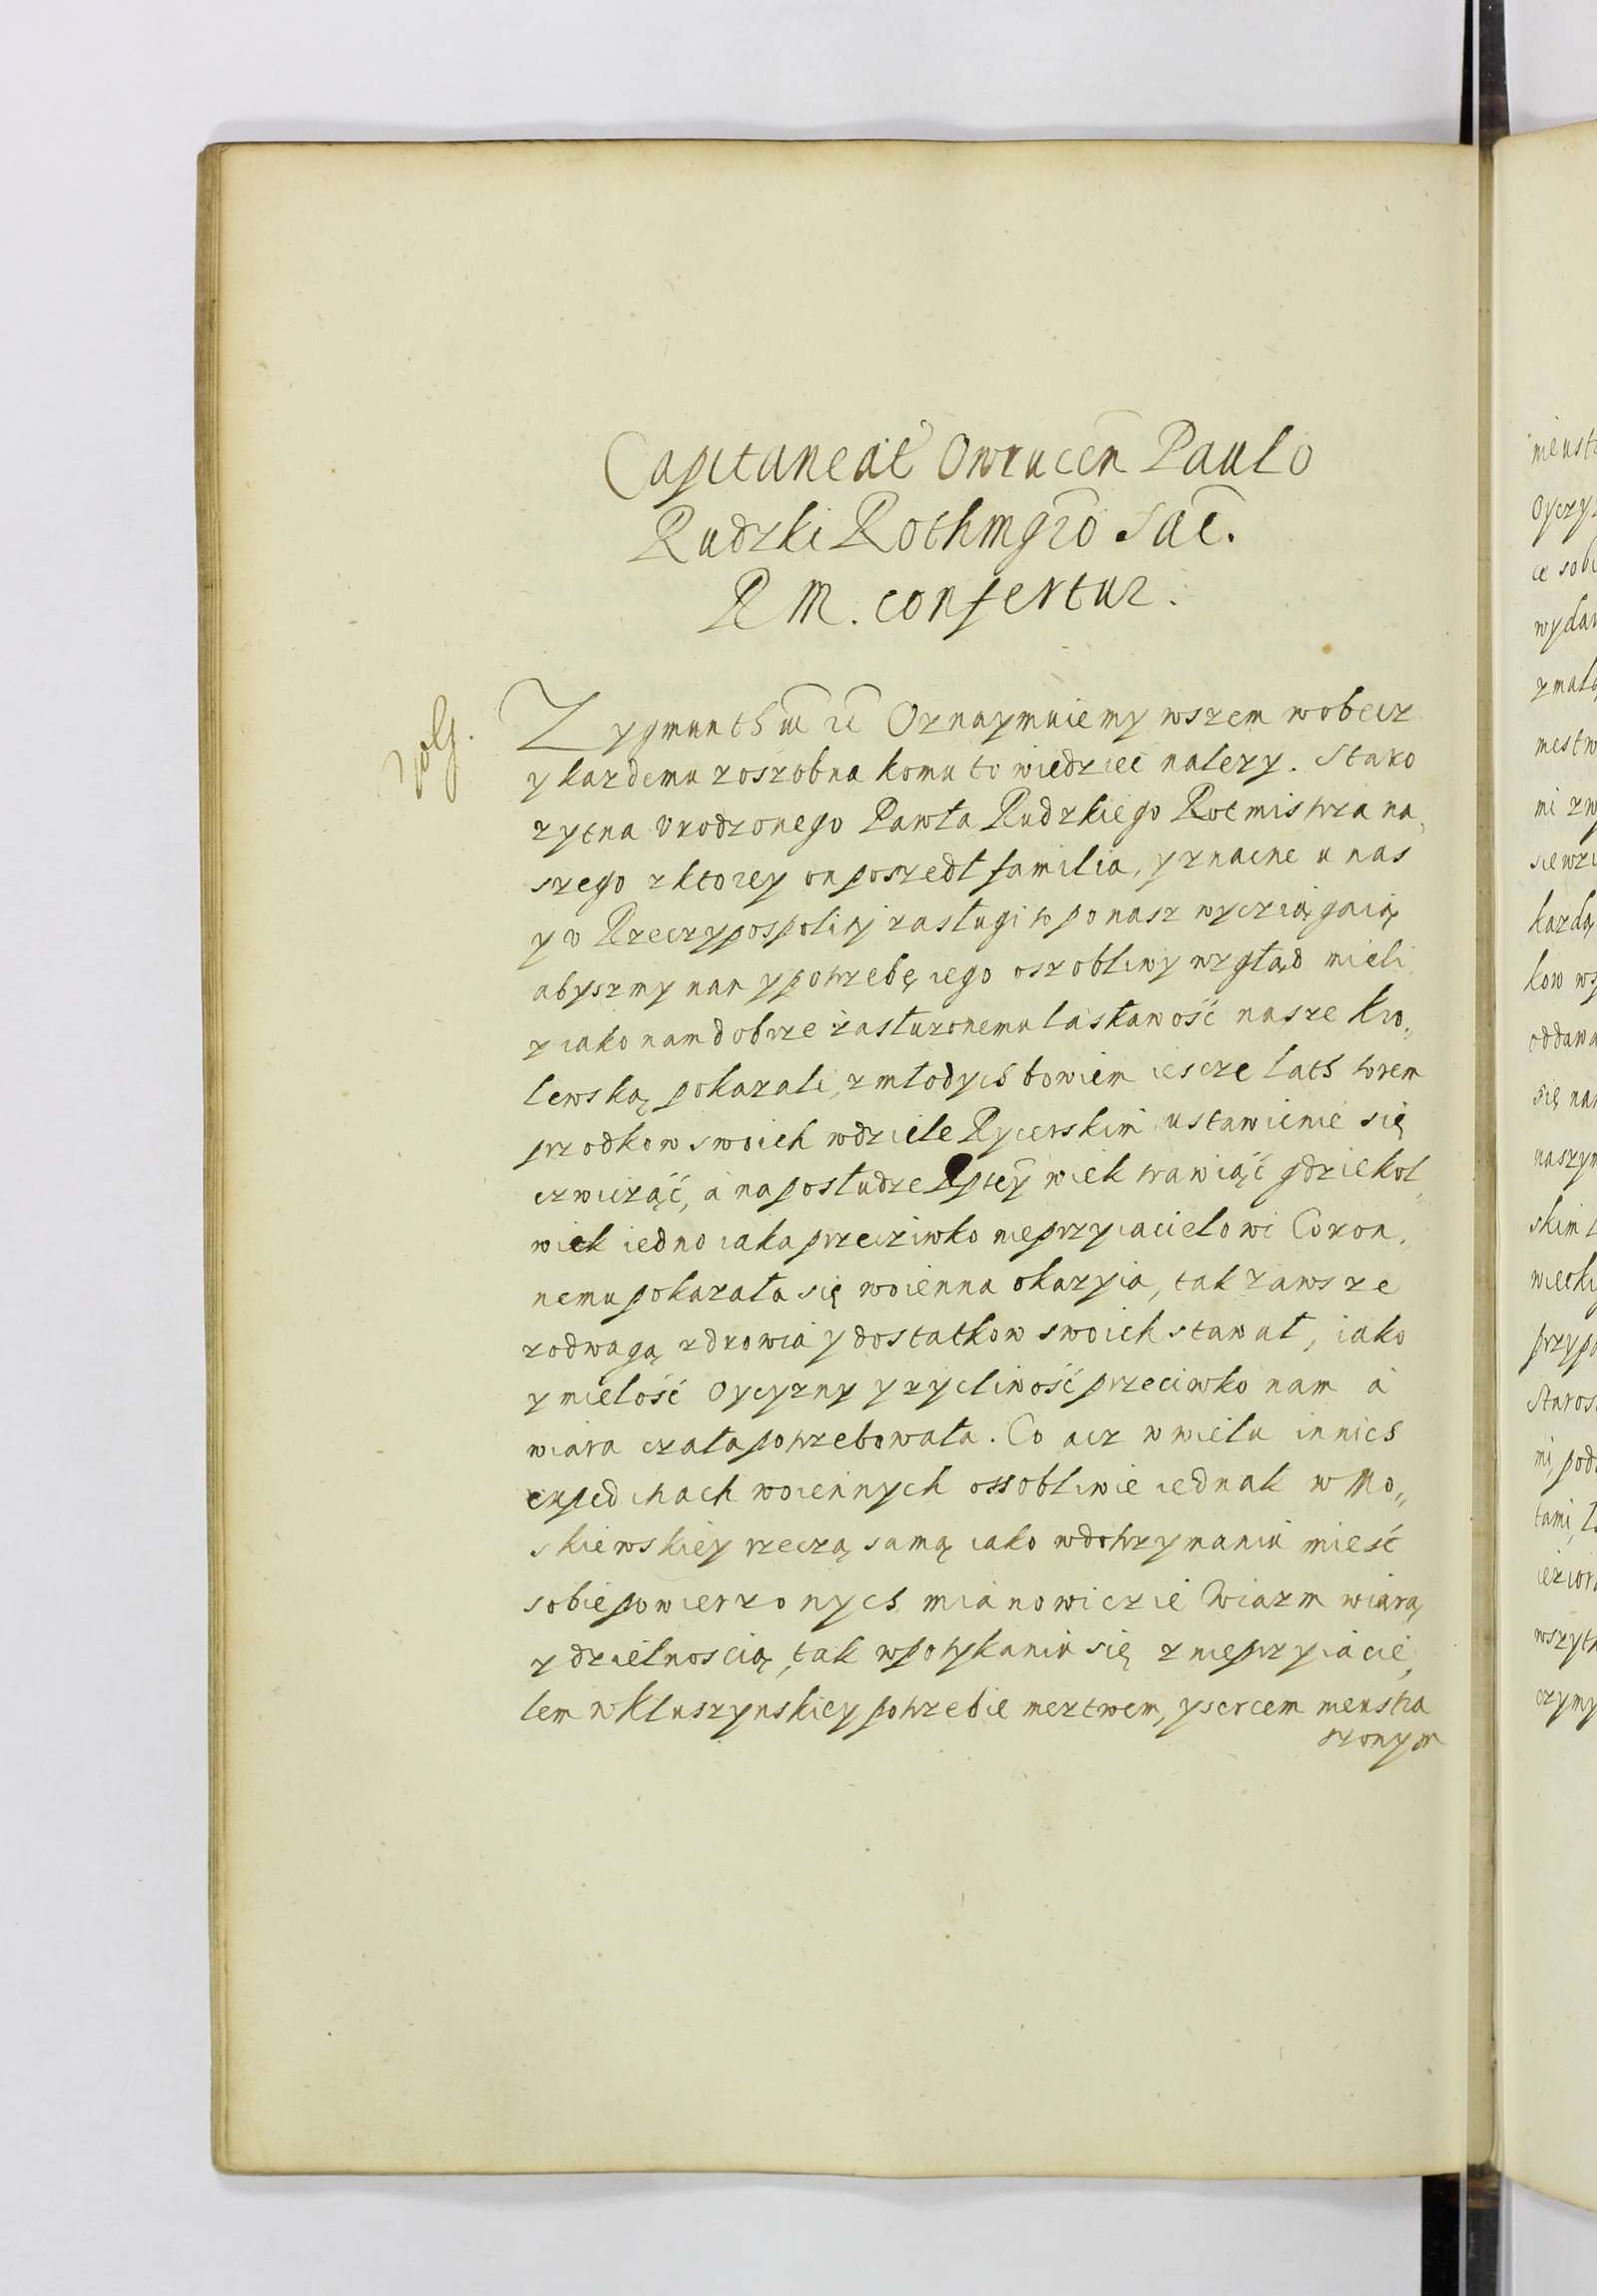 Capitaneat Owrucen Paulo
Rudzki Rothmgro Sac.
R M. confertur.
Zygmunth w u Oznaymuiemy wszem wobecz
y kazdemu zoszobna komu to wiedziec nalezy. Staro
zytna Vrodzonego Pawła Rudzkiego Rotmistrza na,
szego z ktorey on poszedł familia, y znacne u nas
y v Rzeczypospolitÿ zasługi to po nasz wyciągaią
abyszmy nan y potrzebę iego oszobliwy wzgłąd mieli
y iako nam dobrze zasłuzonemu łaskawość nasze Kro,,
lewską pokazali, z młodych bowiem iescze lath torem
przodkow swoich wdziele Rycerskim ustawienie się
czwicząć, a na posłudze Rptey wiek trawiąć gdziekol,,
wiek iedno iaka przeciwko nieprzyiacielowi Coron,,
nemu pokazała się woienna okazyia, tak zawsze
z odwagą zdrowia y dostatkow swoich stawał, iako
y miełość Oyczyzny y zycliwość przeciwko nam a
wiara czała potrzebowała. Co acz w wielu innich
expeditiach woiennych ossobliwie iednak w Mo,,
skiewskiey rzeczą samą iako wdotrzymaniu mieść
sobie powierzonych mianowiczie Wiazm wiarą
y dzielnoscią, tak wpotykaniu się z nieprzyiacie,
lem w Kłuszynskiey potrzebie meztwem, y sercem nieustra
szonym